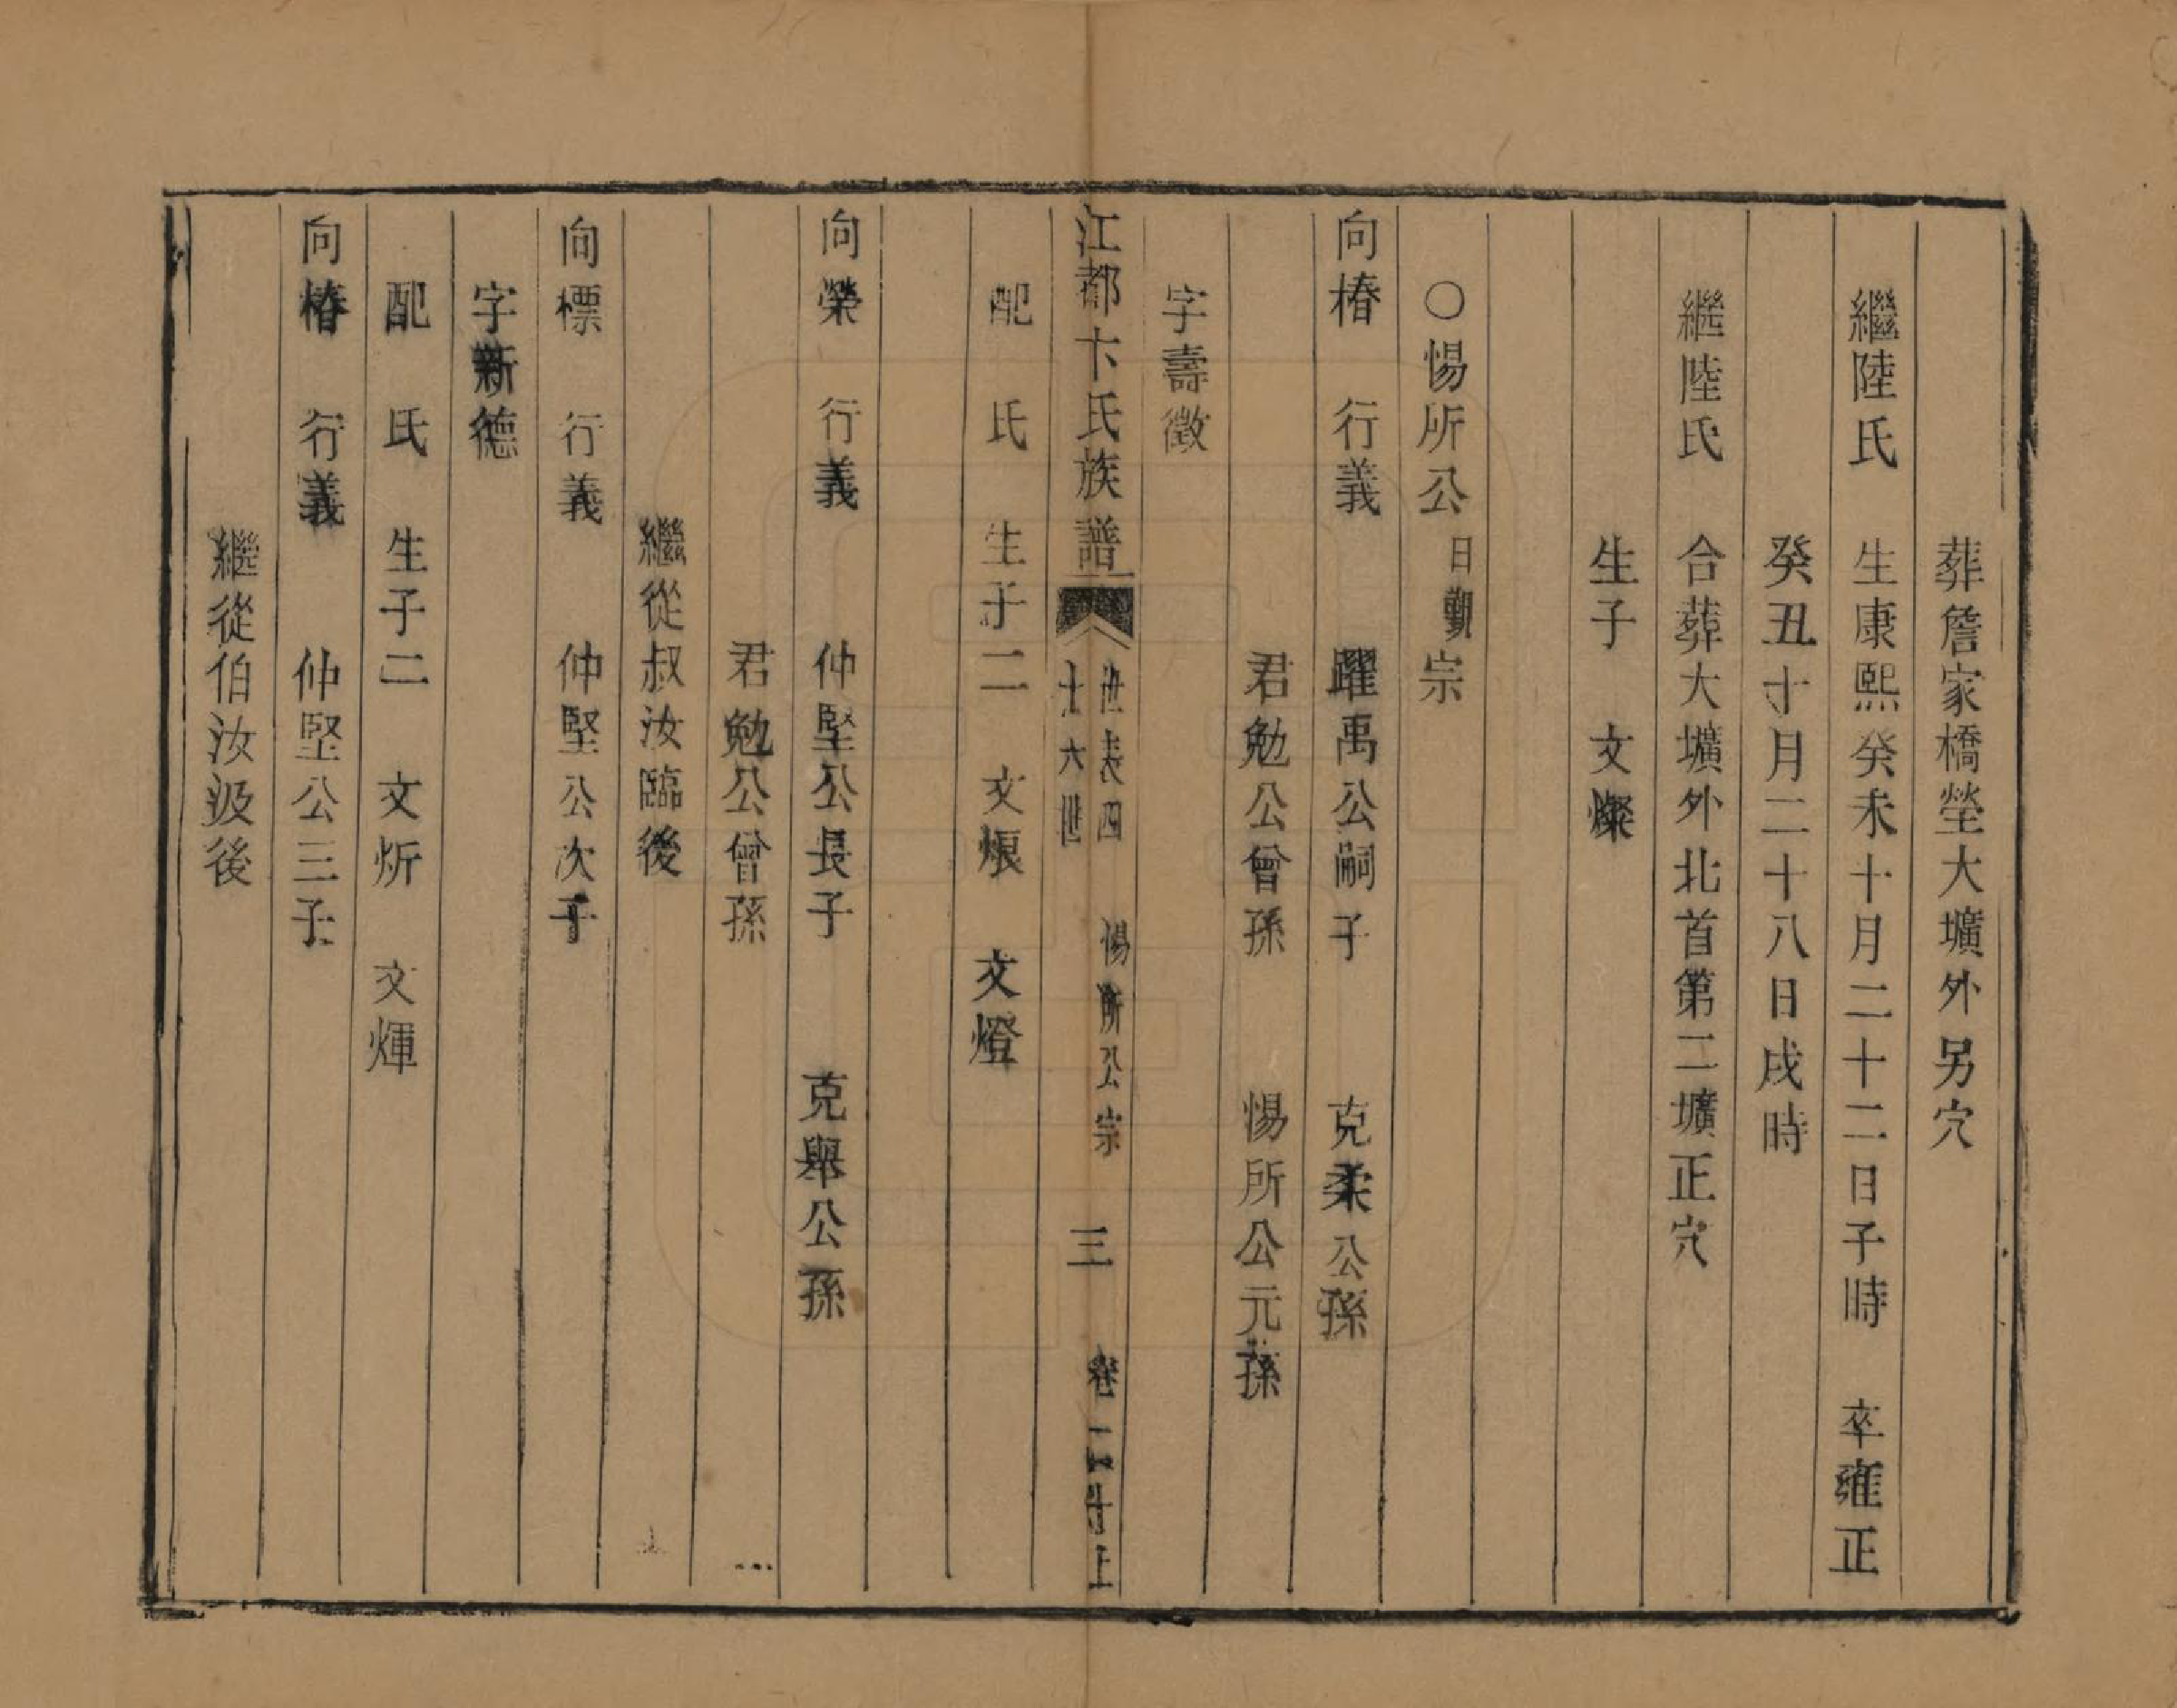 葬詹家橋塋大壙外另穴
繼陸氏 生康熙癸未十月二十二日子時 卒雍正
癸丑十月二十八日戌時
繼陸氏 合葬大壙外北首第二壙正穴
生子 文燦
○惕所公日勤宗
向椿 行義 躍禹公嗣子 克柔公孫
君勉公曾孫 惕所公元孫
字壽徵
江都卞氏族譜 世表四 十六世 惕所公宗 三 卷二十上
配 氏 生子二 文烺 文燈
向榮 行義 仲堅公長子 克舉公孫
君勉公曾孫
繼從叔汝臨後
向標 行義 仲堅公次子
字新德
配 氏 生子二 文炘 文煇
向椿 行義 仲堅公三子
繼從伯汝汲後